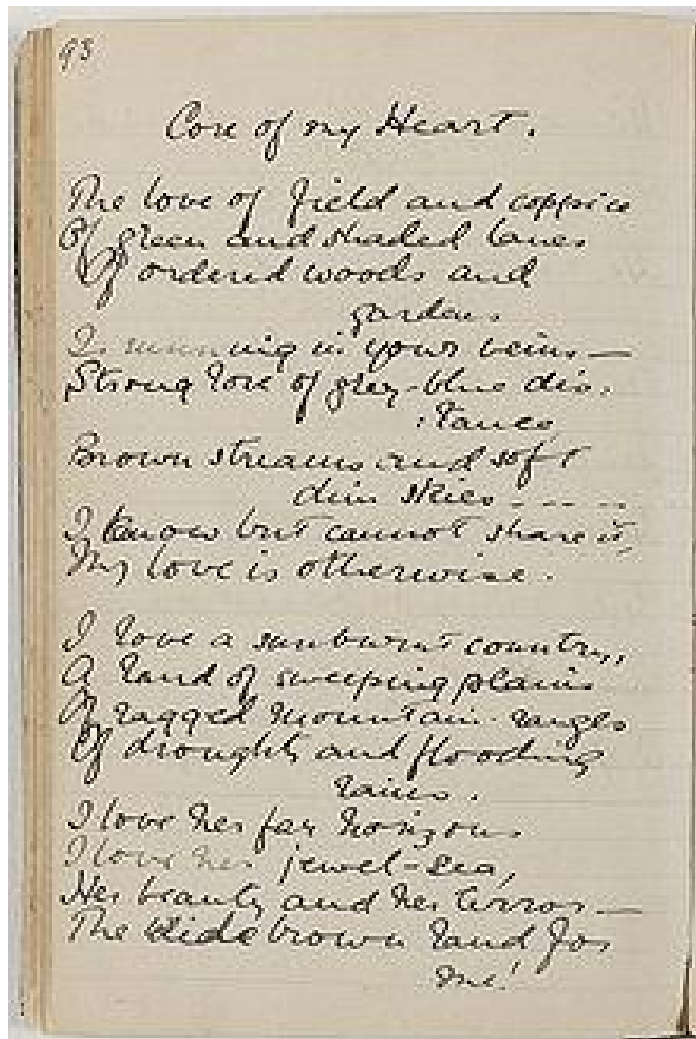 93
Core of my Heart.
The love of field and coppice
Of green and shaded lanes
Of ordered woods and
gardens
Is running in your veins —
Strong love of grey-blue dis-
-tance,
Brown streams and soft
dim skies - - - -
I know but cannot share it,
My love is otherwise.
I love a sunburnt country,
A land of sweeping plains
Of ragged mountain-ranges
Of droughts and flooding
rains.
I love her far horizons
I love her jewel-sea,
Her beauty and her terror —
The wide brown land for
me!